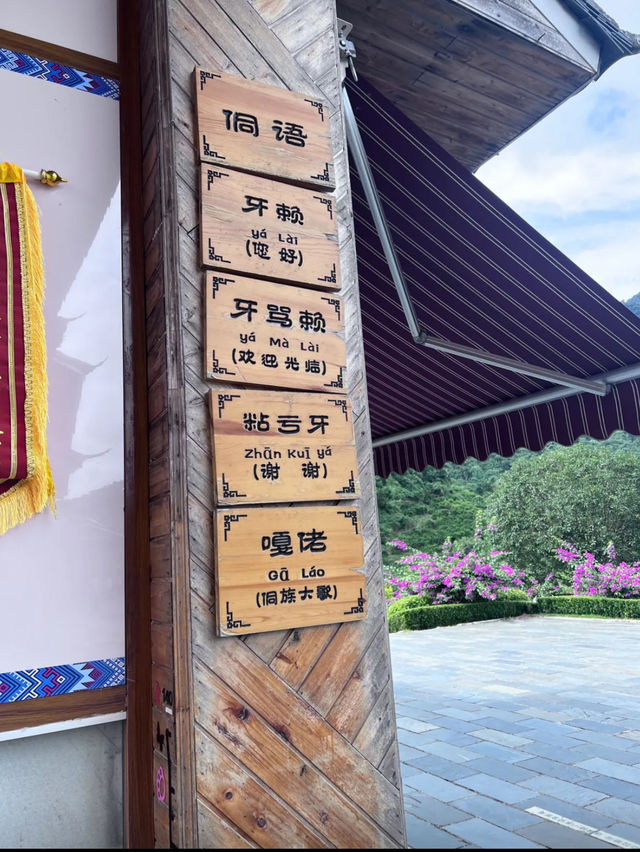 侗语
牙赖
yá Lài
(您好)
牙骂赖
yá Mà Lài
(欢迎光临)
粘亏牙
Zhān Kuī yá
(谢谢)
嘎佬
Gā Láo
(侗族大歌)